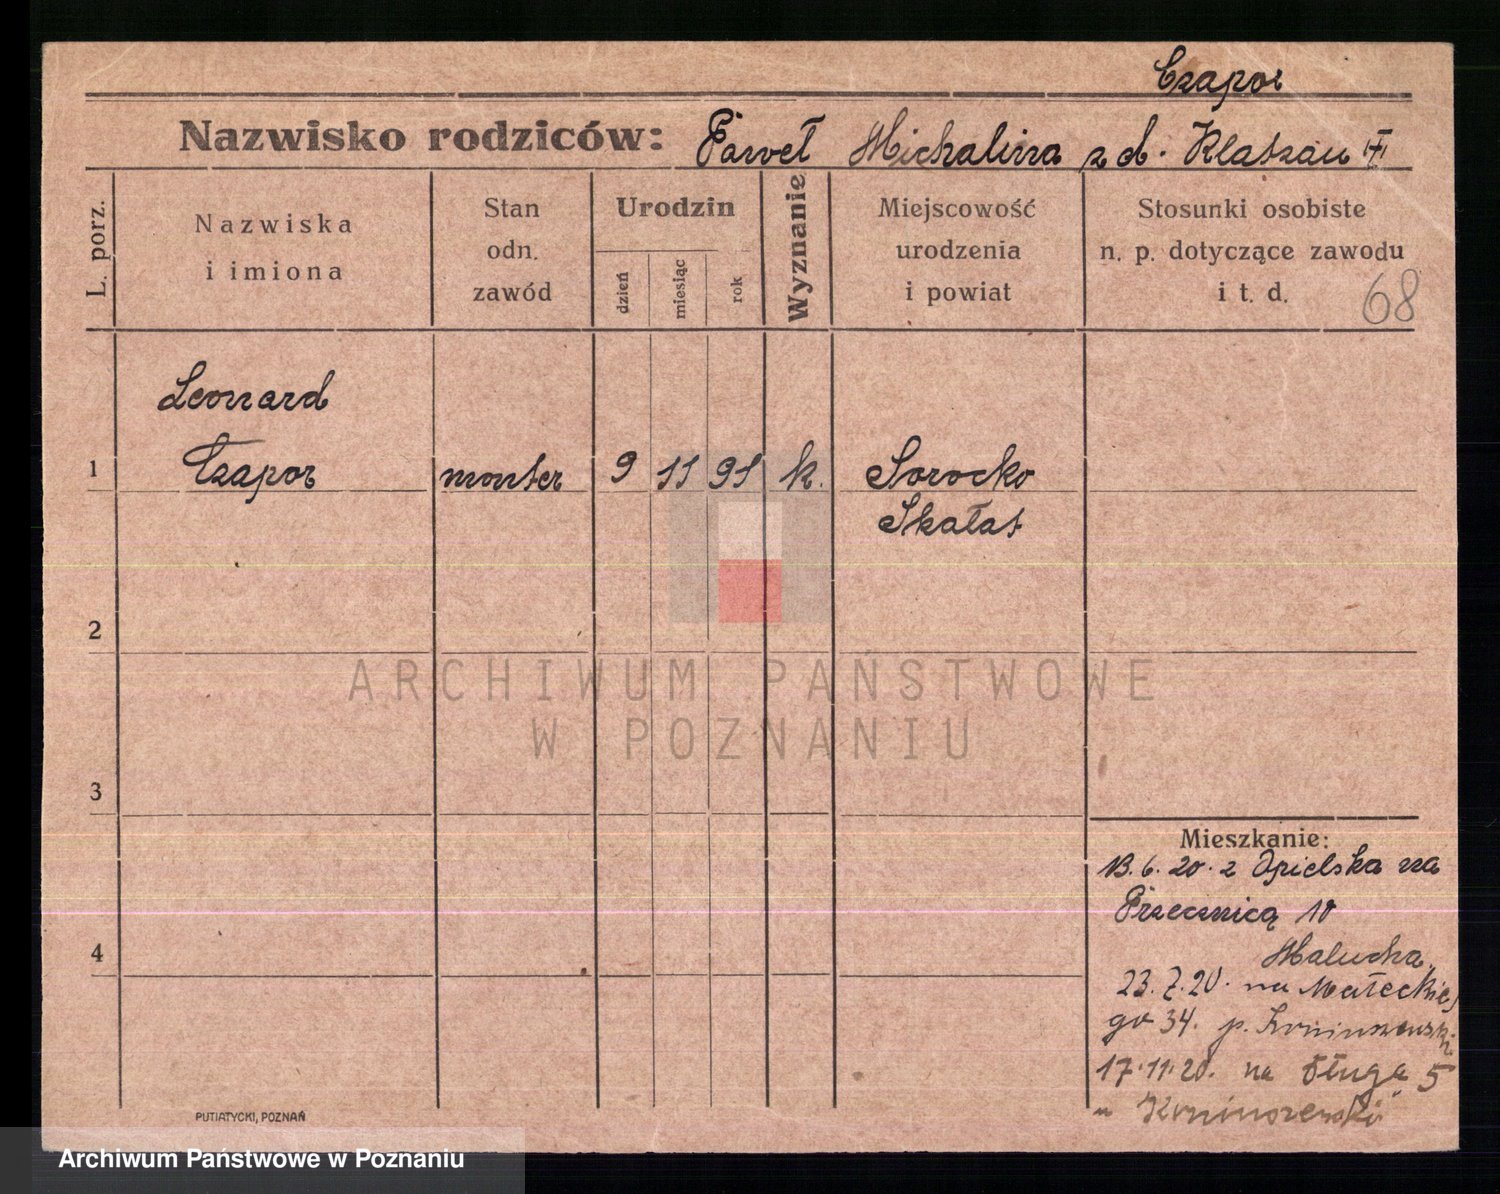 Czapor
Nazwisko rodziców: Paweł Michalina z d.
L. porz.
Nazwiska
i imiona
Stan
odn.
zawód
Urodzin
dzień
miesiąc
rok
Wyznanie
Miejscowość
urodzenia
i powiat
Stosunki osobiste
n. p. dotyczące zawodu
i t. d.
68
Leonard
1 Czapor monter 9 11 91 k. Sorocko
Skałat
2
3
4
Mieszkanie:
13. 6. 20. z Opielska na
Przecznicą 10
Malucha
23. 7. 20. na Małeckie
go 34. p.
17. 11. 20. na Długą 5
ARCHIWUM PAŃSTWOWE
W POZNANIU
PUTIATYCKI, POZNAŃ
Archiwum Państwowe w Poznaniu